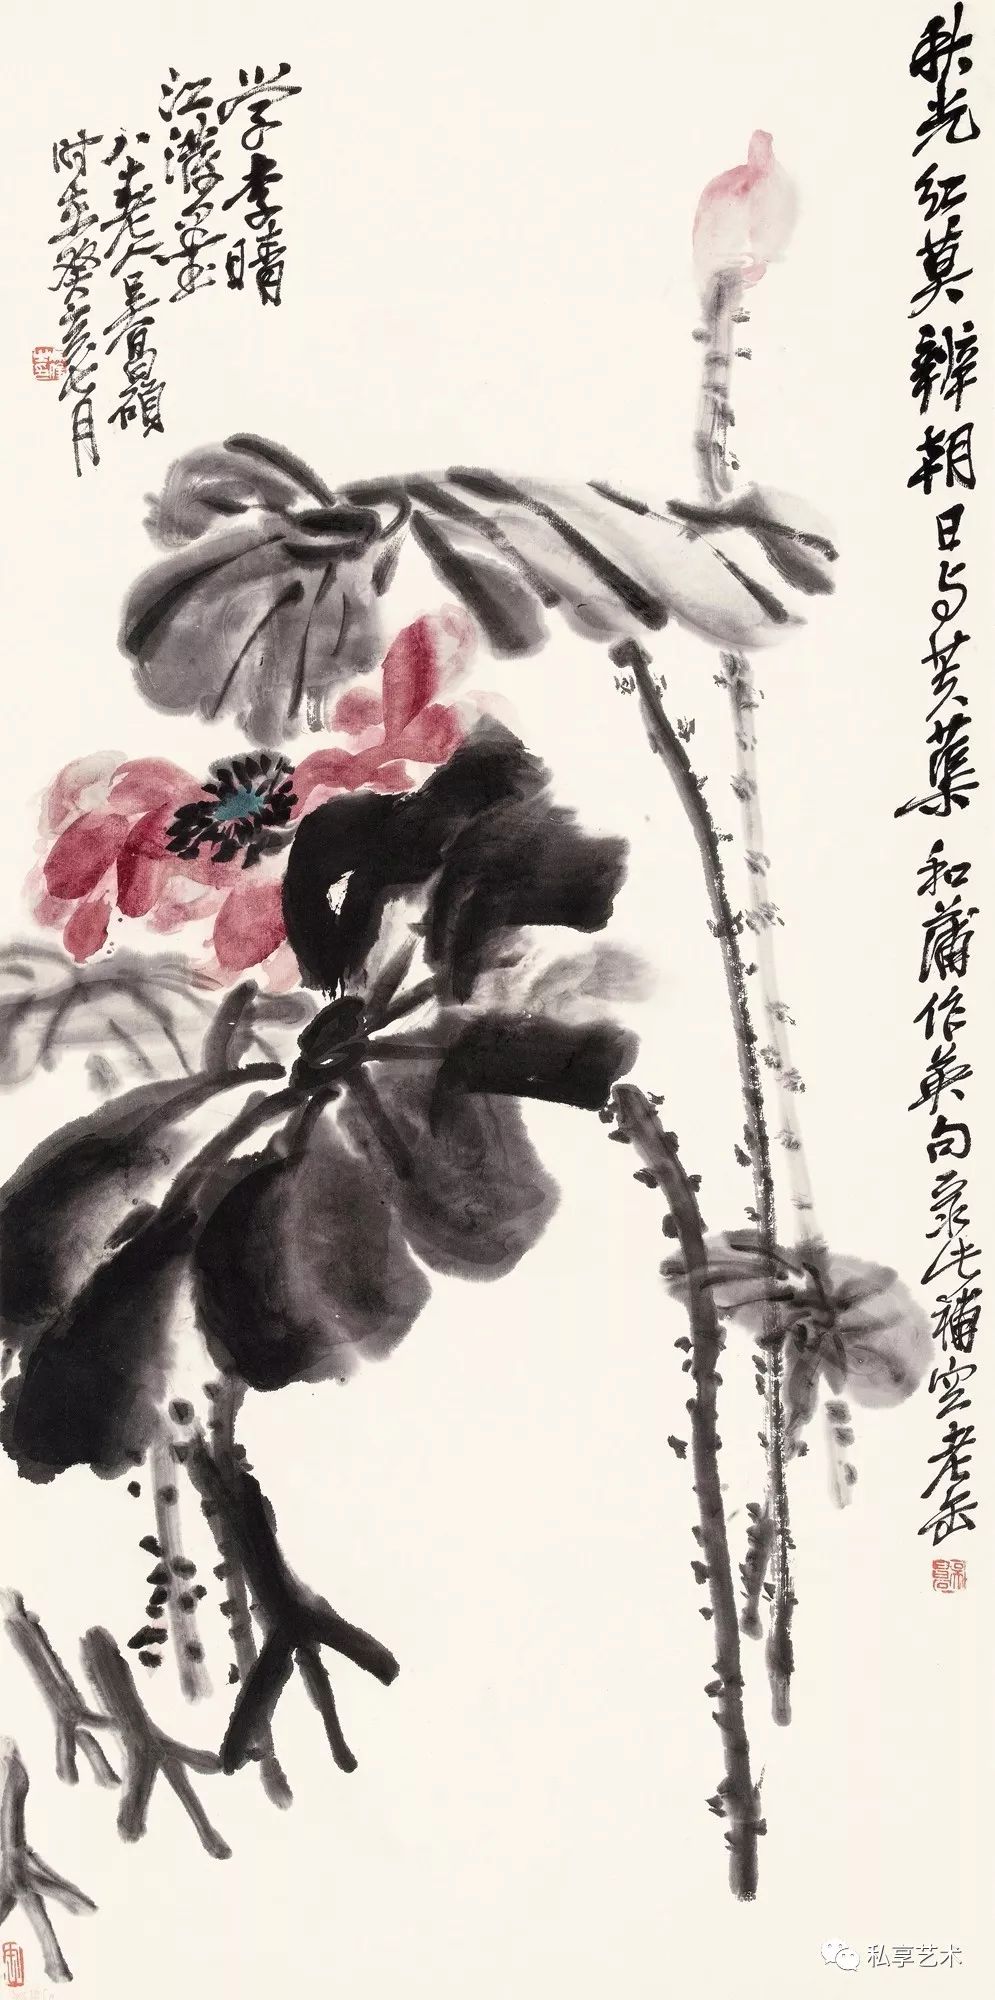 秋光红莫辨朝日与芙蕖和蒲作英句录此补空老缶
学李晴
江泼墨
八十老人吴昌硕
时在癸亥七月
私享艺术